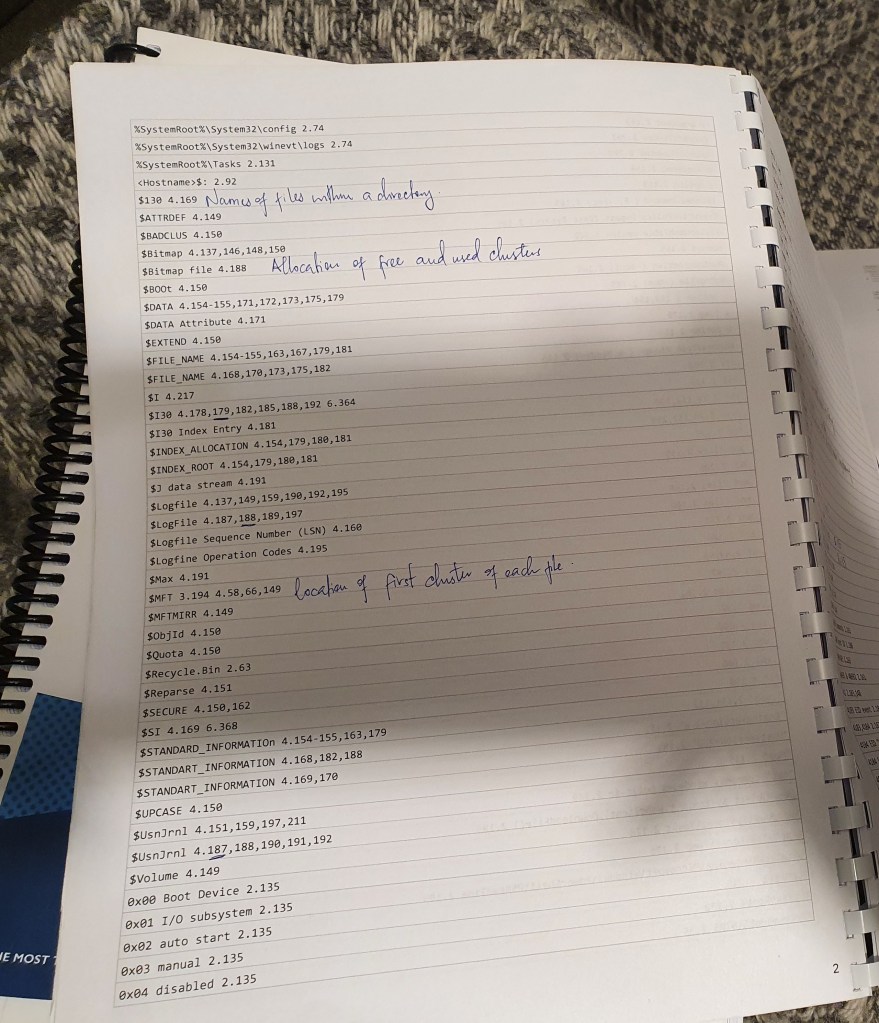 %SystemRoot%\System32\config 2.74
%SystemRoot%\System32\winevt\logs 2.74
%SystemRoot%\Tasks 2.131
<Hostname>$: 2.92
$130 4.169 Names of files within a directory.
$ATTRDEF 4.149
$BADCLUS 4.150
$Bitmap 4.137,146,148,150
$Bitmap file 4.188 Allocation of free and used clusters
$BOOt 4.150
$DATA 4.154-155,171,172,173,175,179
$DATA Attribute 4.171
$EXTEND 4.150
$FILE_NAME 4.154-155,163,167,179,181
$FILE_NAME 4.168,170,173,175,182
$I 4.217
$I30 4.178,179,182,185,188,192 6.364
$I30 Index Entry 4.181
$INDEX_ALLOCATION 4.154,179,180,181
$INDEX_ROOT 4.154,179,180,181
$J data stream 4.191
$Logfile 4.137,149,159,190,192,195
$LogFile 4.187,188,189,197
$Logfile Sequence Number (LSN) 4.160
$Logfine Operation Codes 4.195
$Max 4.191
$MFT 3.194 4.58,66,149 location of first cluster of each file.
$MFTMIRR 4.149
$ObjId 4.150
$Quota 4.150
$Recycle.Bin 2.63
$Reparse 4.151
$SECURE 4.150,162
$SI 4.169 6.368
$STANDARD_INFORMATIOn 4.154-155,163,179
$STANDART_INFORMATION 4.168,182,188
$STANDART_INFORMATION 4.169,170
$UPCASE 4.150
$UsnJrnl 4.151,159,197,211
$UsnJrnl 4.187,188,190,191,192
$Volume 4.149
0x00 Boot Device 2.135
0x01 I/O subsystem 2.135
0x02 auto start 2.135
0x03 manual 2.135
0x04 disabled 2.135
2
MOST